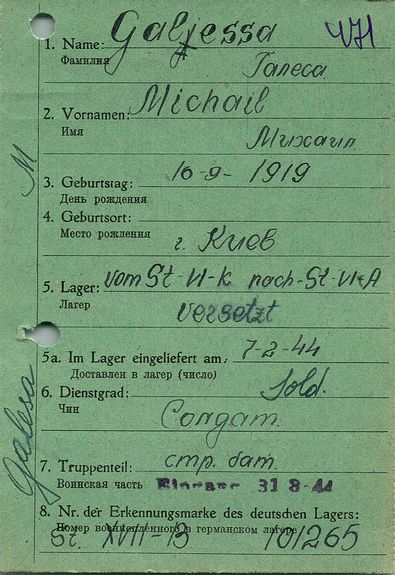 Galjessa
VH
1. Name:
Фамилия
Галеса
Michail
2. Vornamen:
Имя
Михаил
M
10-9-1919
3. Geburtstag:
День рождения
4. Geburtsort:
Место рождения
г. Киев
5. Lager: vom St-VI-K nach-St-VI-A
Лагер
versetzt
5a. Im Lager eingeliefert am: 7-2-44
Доставлен в лагер (число)
6. Dienstgrad: Sold.
Чин
Солдат
Galesa
7. Truppenteil: стр. бат.
Воинская часть 31 8-44
8. Nr. der Erkennungsmarke des deutschen Lagers:
Номер военнопленного в германском лагере
St. XVII-B 101265